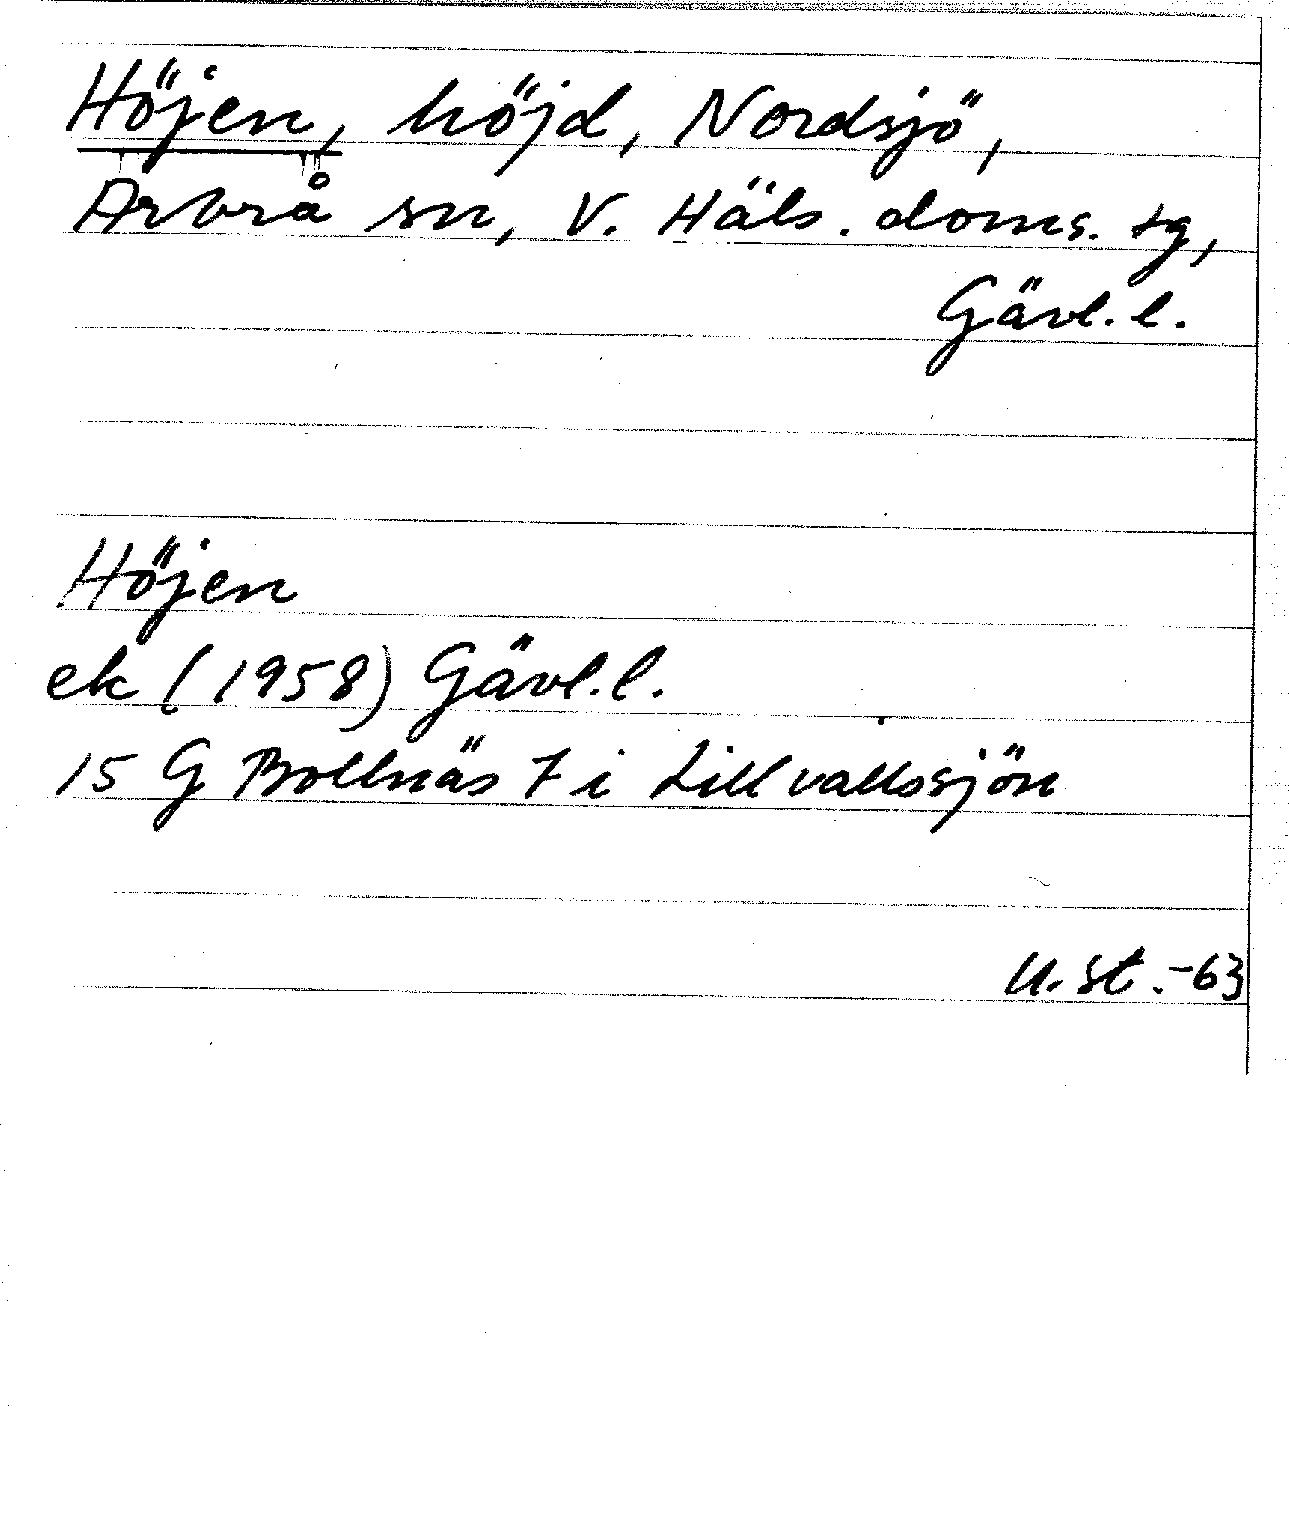 Höjen, höjd, Nordsjö,
Arbrå sn, V. Häls. doms. tg,
Gävl. l.
Höjen
ek (1958) Gävl. l.
15 G Bollnäs 7 i Lillvallssjön
U. St. -63